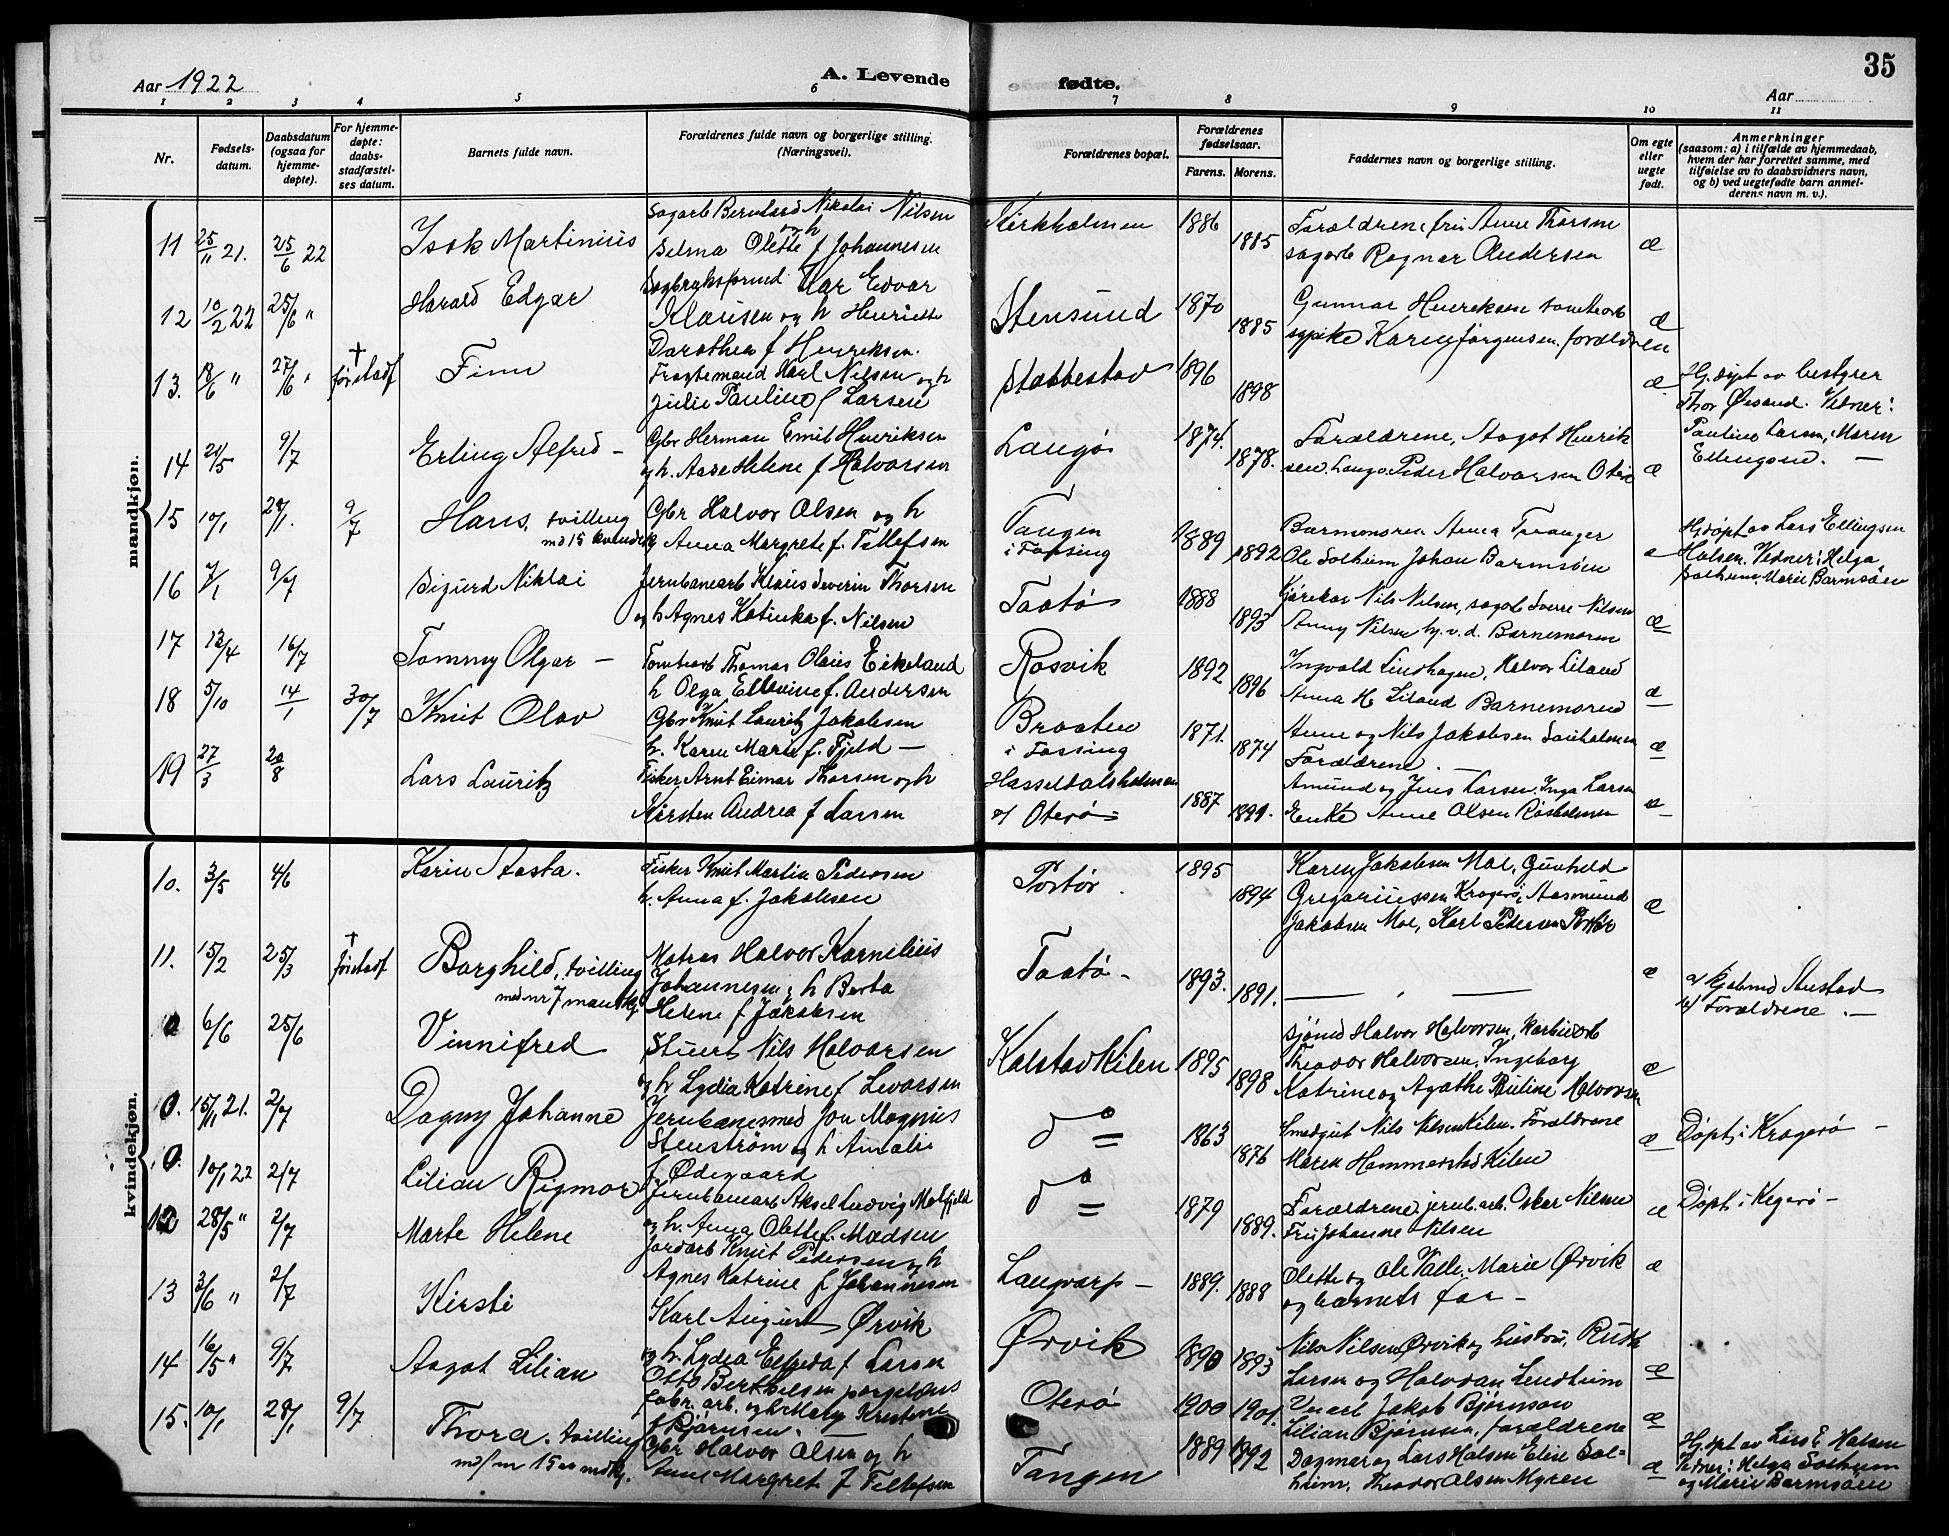 35
Aar 1922
A. Levende fødte.
Aar
1 2 3 4 5 6 7 8 9 10 11
Nr.
Fødsels-
datum.
Daabsdatum
(ogsaa for
hjemme-
døpte).
For hjemme-
døpte:
daabs-
stadfæstel-
ses datum.
Barnets fulde navn.
Forældrenes fulde navn og borgerlige stilling.
(Næringsvei).
Forældrenes bopæl.
Forældrenes
fødselsaar.
Farens. Morens.
Faddernes navn og borgerlige stilling.
Om egte
eller
uegte
født.
Anmerkninger
(saasom: a) i tilfælde av hjemmedaab,
hvem der har forrettet samme, med
tilføielse av to daabsvidners navn,
og b) ved uegtefødte barn anmel-
derens navn m. v.).
mandkjøn.
11 25/11 21. 25/6 22 Isak Martinius
Sagarb Bernhard Nikolai Nilsen
og h
Selma Olette f Johannesen
Kirkholmen 1886 1885
Forældrene, fru Anne Thorsen
sagarb Ragnar Andersen
æ
12 10/2 22 25/6 " Harald Edgar
Karl Edvar
Klausen og h Henriette
Dorothea f Henriksen.
Stensund 1870 1885
Gunnar Henriksen tomtearb
Karen Jørgensen, forældren
æ
13. 18/6 " 27/6 " † før stadf Finn
Fragtemand Karl Nilsen og h
Julie Pauline f Larsen
Stabbestad 1896 1898
æ
Hj.døpt av bestyrer
Thor Øesund. Vidner:
Pauline Larsen, Maren
Ellingsen. —
14 21/5 9/7 Erling Alfred —
Gbr Herman Emil Henriksen
og h. Aase Helene f Halvorsen
Langø 1874. 1878.
Forældrene, Aagot Henrik
sen. Langø. Peder Halvorsen Oterø
æ
15 10/1 28/1. 9/7 Hans, tvilling
md 15 kvindek
Gbr Halvor Olsen og h
Anna Margrete f. Tellefsen
Tangen
i Fossing
1889 1892
Barnmoren Anna Tvanger
Ole Solheim Johan Barmsøen
æ
Hj.døpt av Lars Ellingsen
Halsen. Vidner: Helga
Solheim, Marie Barmsöen
16 7/1 9/7 Sigurd Niklai
Jernbanearb Klaus Severin Thorsen
og h Agnes Katinka f. Nilsen
Taatø 1888 1893
Nils Nilsen, sagarb Sverre Nilsen
Anny Nilsen hj.v.d. Barnemoren
æ
17 13/4 16/7 Tommy Olgar —
Tomtearb Thomas Olaus Eikeland
h Olga Ellevine f. Andersen
Rosvik 1892 1896
Ingvald Lindhagen, Halvor Liland
Anna H. Liland Barnemoren
æ
18 5/10 14/1 30/7 Knut Olav
Gbr Knut Lauritz Jakobsen
h. Karen Marie f. Fjeld —
Braaten
i Fossing
1871. 1874
Anne og Nils Jakobsen
Forældrene. —
æ
19 27/3 20/8 Lars Lauritz
Fisker Arnt Einar Thorsen og h
Kirsten Andrea f Larsen
Hasseldalsholmen
v/ Oterø
1887 1891.
Amund og Jens Larsen, Inga Larsen
Enke Anne Olsen
æ
kvindekjøn.
10. 3/5 4/6 Karin Aasta.
Fisker Knut Martin Pedersen
h. Anna f. Jakobsen
Portør. 1895 1894
Karen Jakobsen Moe, Gunhild
Gregariussen Kragerø, Aasmund
Jakobsen Moe, Karl Pedersen Portør
æ
11. 15/2 25/3 † før stadf Borghild, tvilling
med nr 7 mandkj.
Matros Halvor Kornelius
Johannesen og h Berta
Helene f Jakobsen
Taatø — 1893. 1891.
æ
a/ Gjolmed Austad
b/ Forældrene. —
6/6 25/6 Vinnifred
Stuert Nils Halvorsen
og h Lydia Katrine f. Levorsen
Kalstadkilen 1895 1898
Sjømd Halvor Halvorsen,
Theodor Halvorsen, Ingeborg
Katrine og Agathe Pauline Halvorsen
æ
15/11 21. 2/7 Dagny Johanne
Jernbanesmed Jon Magnus
Stenström og h Amalie
f Ødegaard
do = 1863 1876
Smedgut Nils Nilsen Kilen, Forældrene
Maren Hammerstad Kilen
æ
Døpt i Kragerø —
10/1 22 2/7 Lilian Rigmor
Jernbanearb Aksel Ludvig
og h. Anna Olette f. Madsen
do = 1879 1889.
Forældrene, jernb.arb. Oskar Nilsen
Fru Johanne Nilsen
æ
Døpt i Kragerø —
12 28/5 " 2/7 Marte Helene
Jordarb Knut Pedersen og h
Agnes Katrine f Johannesen
Langvarp — 1889. 1888
Olette og Ole Valle, Marie Ørvik
og barnets far —
æ
13 3/6 " 2/7 Kirsti
Karl August Ørvik
og h. Lydia Elfrida f Larsen
Ørvik 1890 1893
Nils Nilsen Ørvik og hustru, Ruth
Larsen og Halvdan Lendheim
æ
14 16/5 " 9/7 Aagot Lilian
Otto Berthelsen
fabr. arb. og h Mary Kristine
f Bjørnsen. —
Oterø 1900 1901.
Jakob Bjørnson
Lilian Bjørnsen, forældrene
æ
15. 10/1 28/1 9/7 Thora, tvilling
md nr 15 av mdkj.
Gbr Halvor Olsen og h
Anne Margrete f Tellefsen
Tangen 1889 1892
Dagmar og Lars Halsen Elise Sol=
heim, Theodor Olsen Myren
æ
Hj.døpt av Lars E Halsen
Vidner: Helga Solheim
og Marie Barmsöen